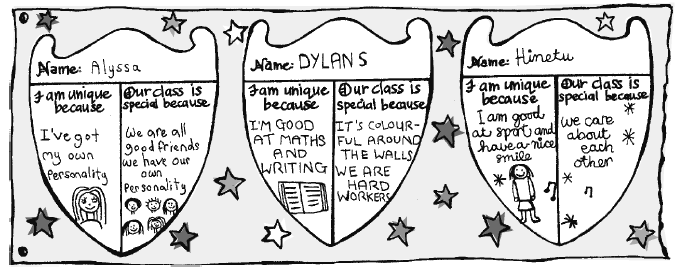 Name: Alyssa
I am unique
because
I've got
my own
personality
Our class is
special because
we are all
good friends
we have our
own
personality
Name: DYLAN S
I am unique
because
I'M GOOD
AT MATHS
AND
WRITING
Our class is
special because
IT'S COLOUR-
FUL AROUND
THE WALLS
WE ARE
HARD
WORKERS
Name: Hinetu
I am unique
because
I am good
at sport and
have a nice
smile
Our class is
special because
we care
about
each
other